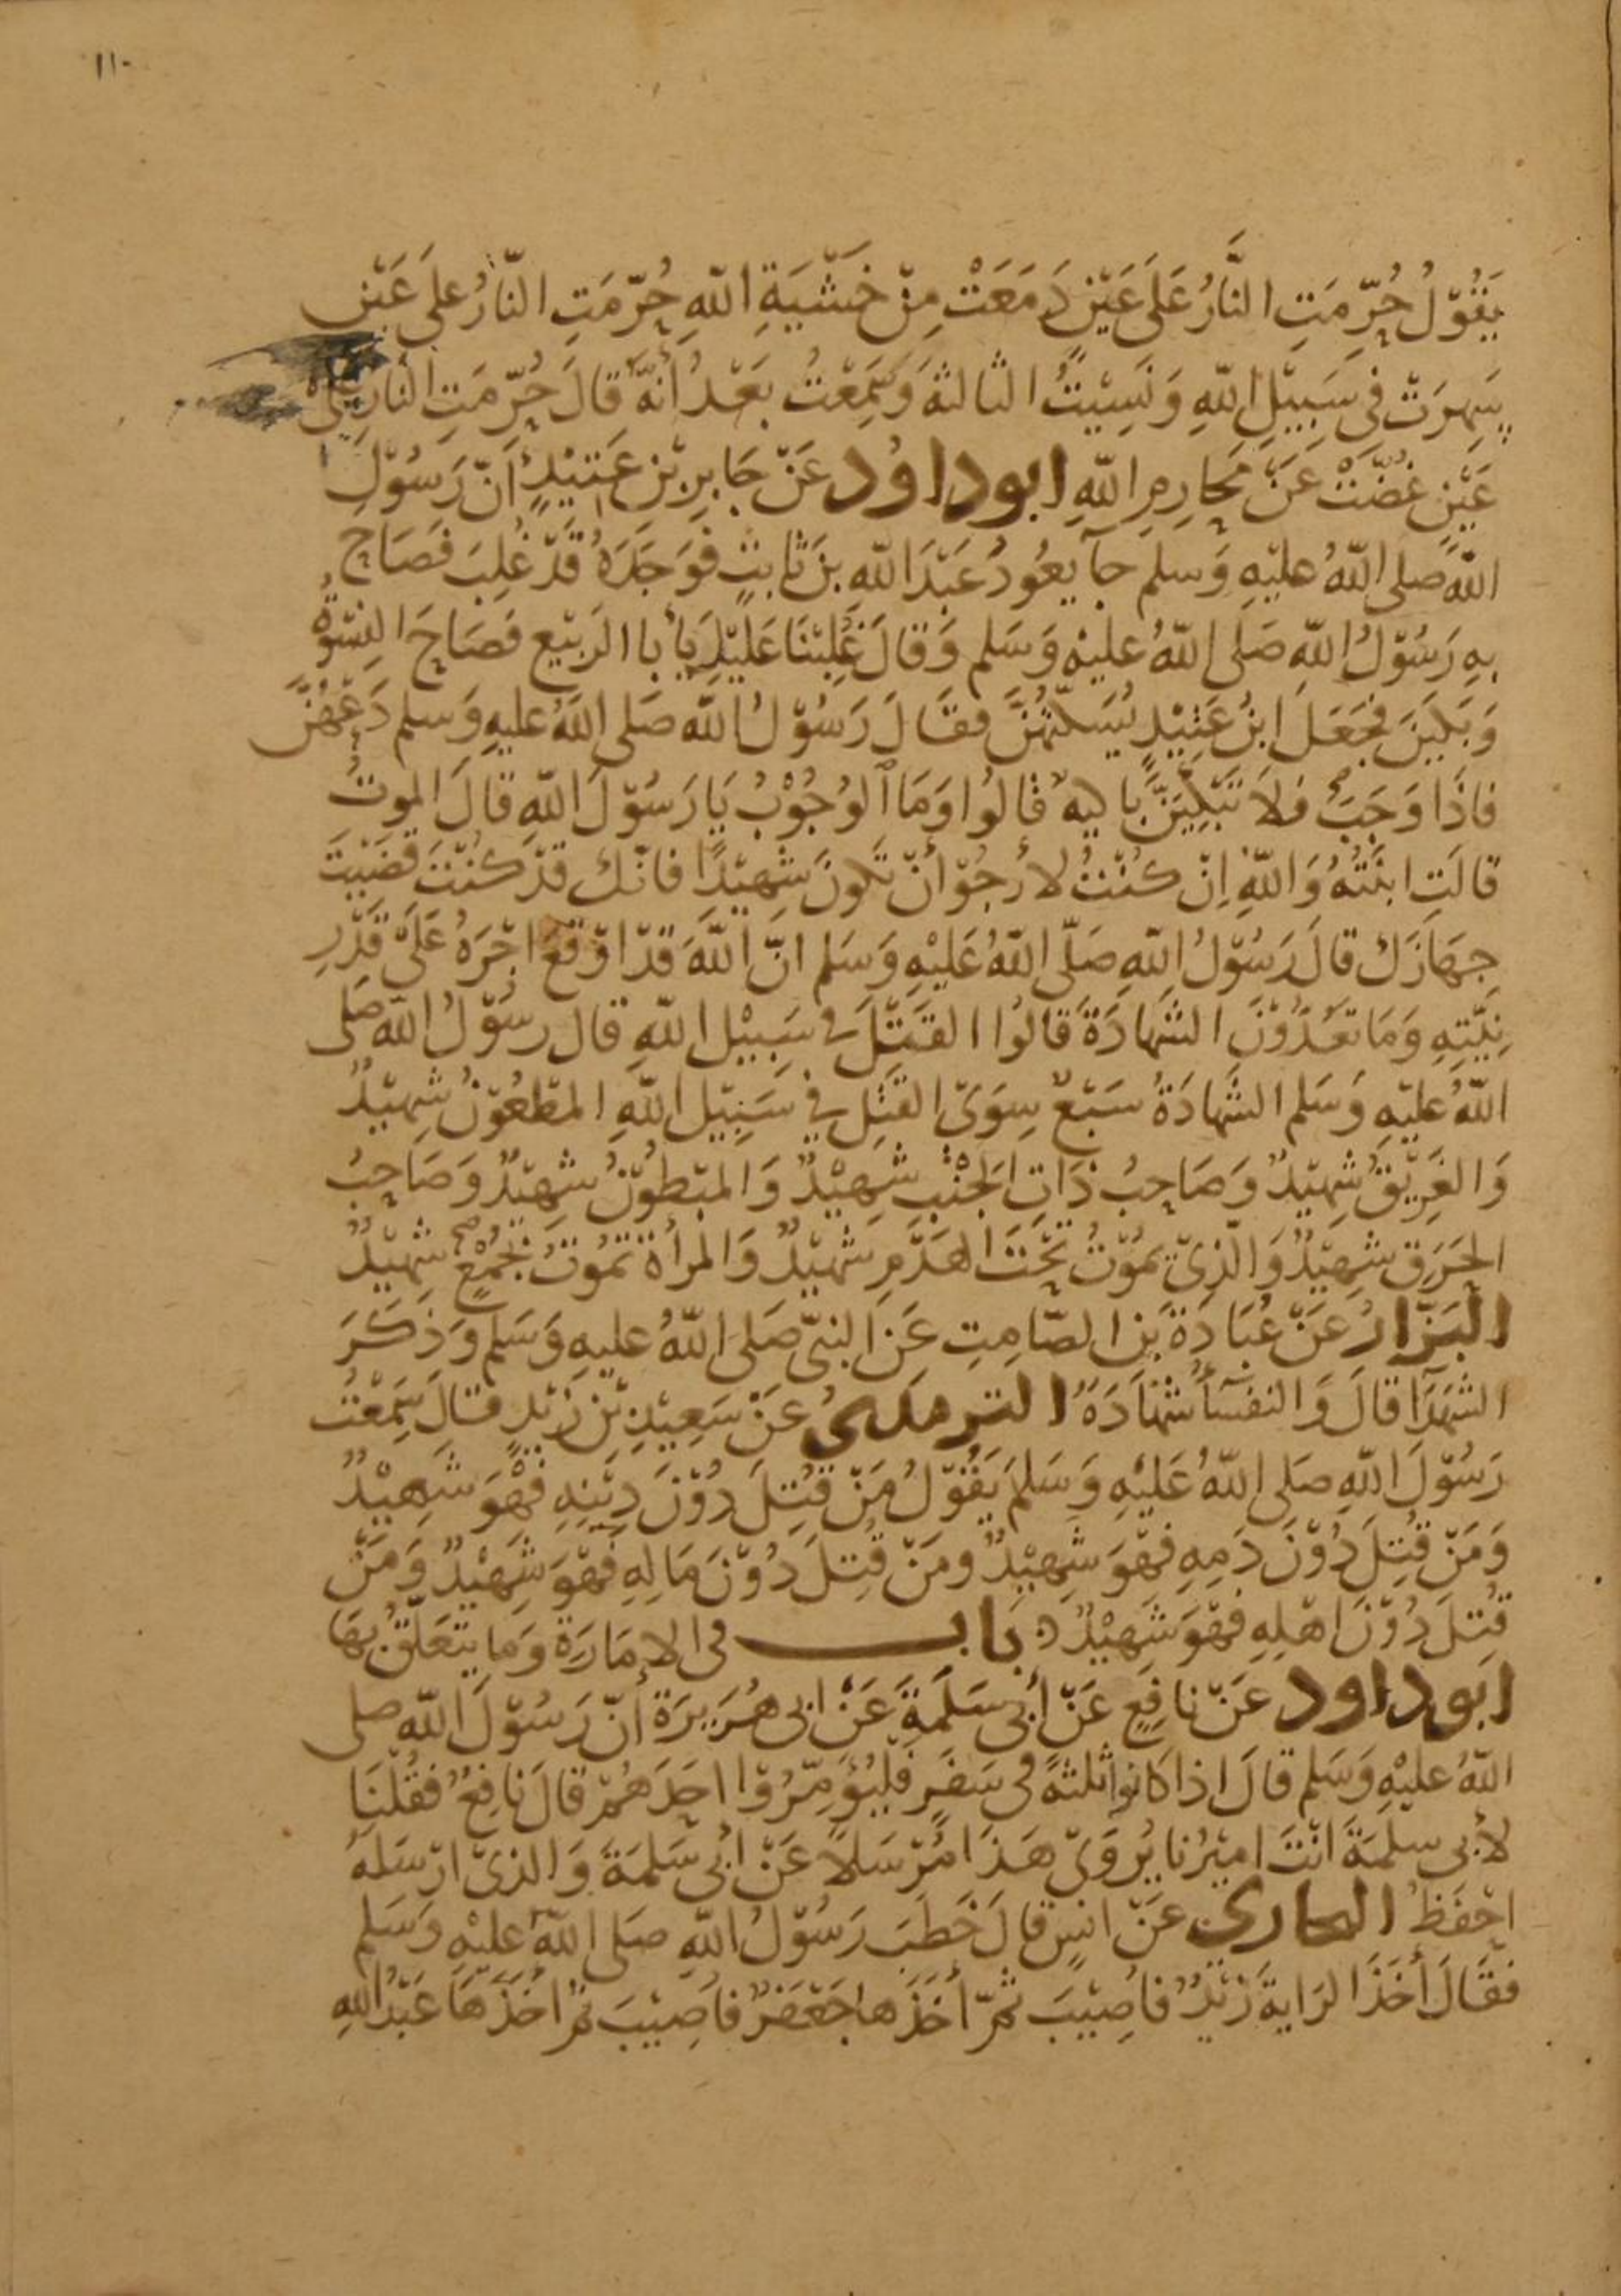 ١١٠
يَقُوْلُ حُرِّمَتِ النَّارُ عَلَى عَيْنٍ دَمَعَتْ مِنْ خَشْيَةِ اللّٰهِ حُرِّمَتِ النَّارُ على عَيْنٍ
سَهِرَتْ فى سَبِيْلِ اللّٰهِ وَنَسِيْتُ الثالثةَ وَسَمِعْتُ بَعْدُ أنّهُ قالَ حُرِّمَتِ النار على
عَيْنٍ غُضَّتْ عَنْ مَحَارِمِ اللّٰهِ ابوداوُد عَنْ جَابِرِ بْنِ عَتِيْكٍ أنَّ رَسُوْلَ
اللّٰهِ صلى اللّٰهُ عليْهِ وَسلم جآ يعُودُ عَبْدَ اللّٰهِ بنَ ثابتٍ فوَجَدَهُ قَدْ غُلِبَ فصَاحَ
بهِ رَسُوْلُ اللّٰهِ صَلى اللّٰهُ عليْهِ وَسَلم وَقالَ غُلِبْنَا عَلَيْكَ يا أبا الرَبيْعِ فصَاحَ النِسْوَةُ
وَبَكَيْنَ فجَعَلَ ابنُ عَتِيْكٍ يُسَكِّتُهُنَّ فقَالَ رَسُوْلُ اللّٰه صَلى اللّٰهُ عليهِ وَسلم دَعْهُنَّ
فاذَا وَجَبَ فلَا تَبْكِيَنَّ باكيةٌ قالُوا وَمَا الوُجُوْبُ يَا رَسُوْلَ اللّٰهِ قالَ الموتُ
قالَتِ ابنَتُهُ وَاللّٰهِ اِنْ كنْتُ لأرْجُوْ أنْ تكونَ شهِيْدًا فانّكَ قدْ كنْتَ قضَيْتَ
جِهَازَكَ قالَ رَسُوْلُ اللّٰهِ صَلّى اللّٰهُ عَلَيْهِ وَسَلم انَّ اللّٰهَ قدْ اوْقعَ اجْرَهُ عَلَى قَدْرِ
نِيَّتِهِ وَمَا تعُدُّوْنَ الشهَادَةَ قالُوا القتْلَ فى سَبِيْلِ اللّٰهِ قالَ رسُوْلُ اللّٰه صَلى
اللّٰهُ عليْهِ وَسَلم الشهَادَةُ سَبْعٌ سِوَى القتْلِ فِي سَبِيْلِ اللّٰهِ المطْعُوْنُ شهِيْدٌ
وَالغَرِيْقُ شهِيْدٌ وَصَاحِبُ ذَاتِ الجَنْبِ شهِيْدٌ وَالمبْطوْنُ شهِيْدٌ وَصَاحِبُ
الحَرَقِ شهِيْدٌ وَالّذِىْ يموْتُ تحْتَ الهَدْمِ شهِيْدٌ وَالمرأةُ تمُوْتُ بجُمْعٍ شهِيْدٌ
البَزّارُ عَنْ عُبَادَةَ بنِ الصّامِتِ عَنِ النبىّ صَلى اللّٰهُ عليهِ وَسَلم وَذَكَرَ
الشهَدَآ قالَ وَالنفسَآ شهَادَةٌ الترمذيُ عَنْ سَعِيْدِ بْنِ زَيْدٍ قالَ سَمِعْتُ
رَسُوْلَ اللّٰهِ صَلى اللّٰهُ عَليْهِ وَسَلمَ يَقُوْلُ مَنْ قُتِلَ دُوْنَ دِيْنِهِ فهْوَ شَهِيْدٌ
وَمَنْ قُتِلَ دُوْنَ دَمِهِ فهْوَ شَهِيْدٌ ومَنْ قُتِلَ دُوْنَ مَالِهِ فهْوَ شَهِيْدٌ وَمَنْ
قُتِلَ دُوْنَ اهْلِهِ فهْوَ شَهِيْدٌ باب فى الامَارَةِ وَما يتعَلّقُ بهَا
ابوداود عَنْ نافِعٍ عَنْ أبى سَلمَةَ عَنْ ابى هُرَيرَةَ أنّ رَسُوْلَ اللّٰه صلى
اللّٰهُ عليْهِ وَسَلم قالَ اذا كانوا ثلثةً فى سَفَرٍ فلْيُؤَمِّرُوْا احَدَهُمْ قالَ نافِعٌ فقُلْنَا
لأبى سلمَةَ انْتَ امِيْرُنا يُرْوَىْ هَذَا مُرْسَلًا عَنْ ابى سَلمَةَ وَالذىْ ارْسَلهُ
احْفَظُ البخارى عَنْ انسٍ قالَ خَطَبَ رَسُوْلُ اللّٰهِ صَلى اللّٰهُ عليْهِ وَسَلم
فقَالَ أخَذَ الرَايةَ زَيْدٌ فاُصِيْبَ ثمّ أخَذَها جَعْفَرٌ فاُصِيْبَ ثمّ اخَذَهَا عَبْدُ اللّٰهِ